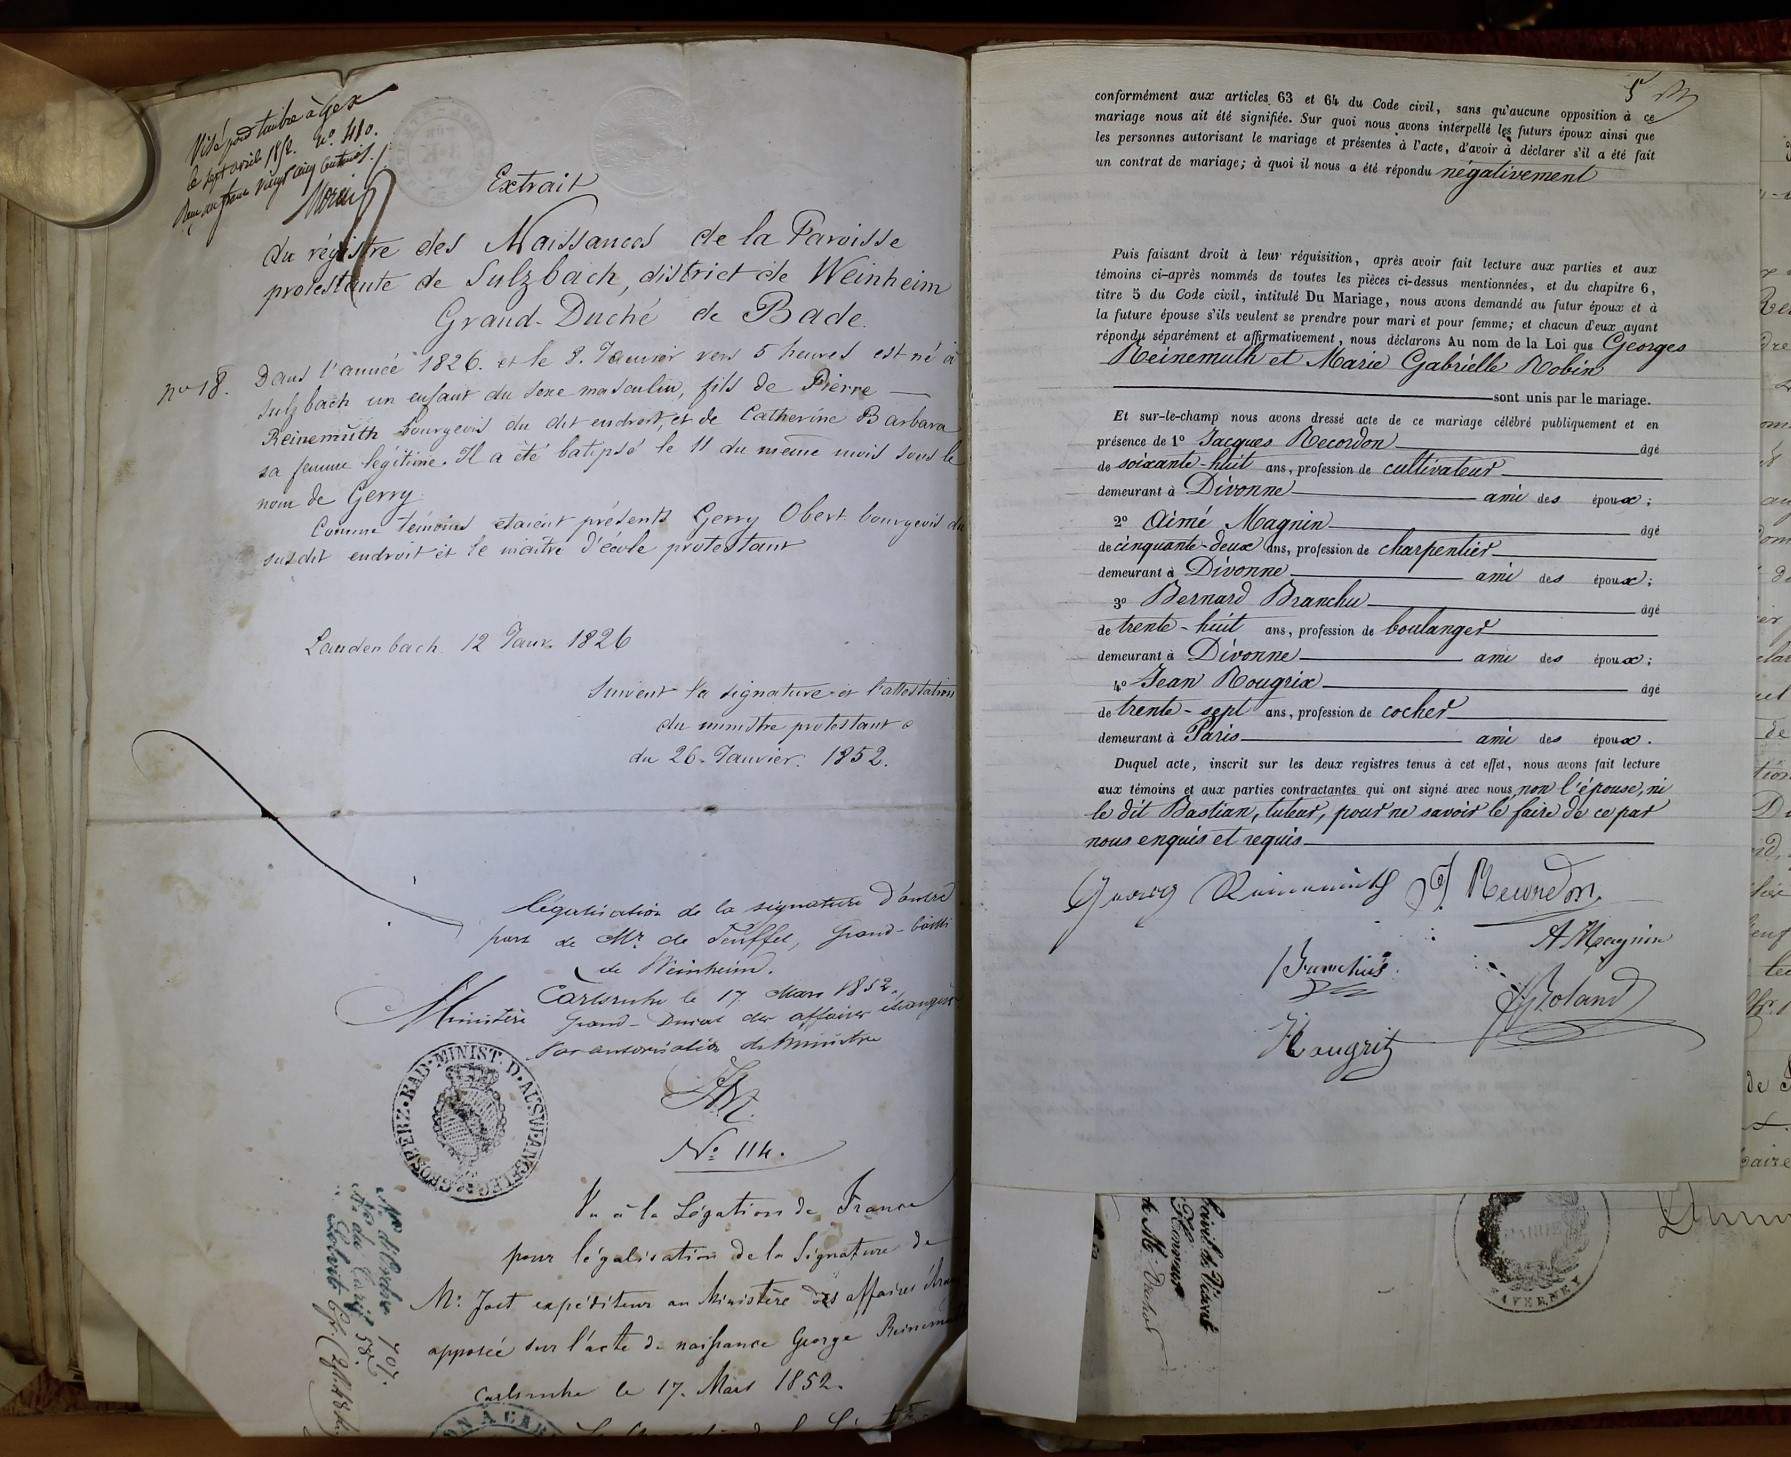 Visé pour timbre à Gex
le sept avril 1852. No. 410.
Reçu un franc vingt cinq centimes.
Extrait
du régistre des Naissances de la Paroisse
protestante de Sulzbach, district de Weinheim
Grand-Duché de Bade.
no 18.
Dans l'année 1826. et le 8. Janvier vers 5 heures est né à
Sulzbach un enfant du sexe masculin, fils de Pierre
Reinemuth bourgeois du dit endroit, et de Catherine Barbara
sa femme légitime. Il a été batipsé le 11 du même mois sous le
nom de Gerry.
Comme témoins etaient présents Gerry Obert bourgeois du
susdit endroit et le maître d'école protestant
Laudenbach 12 Janv. 1826
Suivent la signature et l'attestation
du ministre protestant
du 26. Janvier. 1852.
légalisation de la signature d'autre
part de Mr. de Teuffel, Grand-bailli
de Weinheim.
Carlsruhe le 17. Mars 1852.
Ministère Grand-Ducal des affaires étrangères
Par autorisation du Ministre
GROSHERZ. BAD. MINIST. D. AUSW. ANGELEG.
No. 114.
Vu à la Légation de France
pour légalisation de la Signature de
Mr. Jost expéditeur au Ministère des affaires étran
apposée sur l'acte de naissance George Reinemuth
Carlsruhe le 17. Mars 1852.
No. d'Ordre 707.
No. du Tarif 58.
5
conformément aux articles 63 et 64 du Code civil, sans qu'aucune opposition à ce
mariage nous ait été signifiée. Sur quoi nous avons interpellé les futurs époux ainsi que
les personnes autorisant le mariage et présentes à l'acte, d'avoir à déclarer s'il a été fait
un contrat de mariage; à quoi il nous a été répondu négativement
Puis faisant droit à leur réquisition, après avoir fait lecture aux parties et aux
témoins ci-après nommés de toutes les pièces ci-dessus mentionnées, et du chapitre 6,
titre 5 du Code civil, intitulé Du Mariage, nous avons demandé au futur époux et à
la future épouse s'ils veulent se prendre pour mari et pour femme; et chacun d'eux ayant
répondu séparément et affirmativement, nous déclarons Au nom de la Loi que Georges
Reinemuth et Marie Gabrielle Robin
sont unis par le mariage.
Et sur-le-champ nous avons dressé acte de ce mariage célébré publiquement et en
présence de 1o Jacques Recordon âgé
de soixante-huit ans, profession de cultivateur
demeurant à Divonne ami des époux;
2o Aimé Magnin âgé
de cinquante-deux ans, profession de charpentier
demeurant à Divonne ami des époux;
3o Bernard Branchu âgé
de trente-huit ans, profession de boulanger
demeurant à Divonne ami des époux;
4o Jean Rougrix âgé
de trente-sept ans, profession de cocher
demeurant à Paris ami des époux.
Duquel acte, inscrit sur les deux registres tenus à cet effet, nous avons fait lecture
aux témoins et aux parties contractantes qui ont signé avec nous non l'épouse, ni
le dit Bastian, tuteur, pour ne savoir le faire de ce par
nous enquis et requis
Georg Reinemuth J Recordon
A Magnin
Branchu
Roland
Rougrix
MAIRIE
TAVERNEY